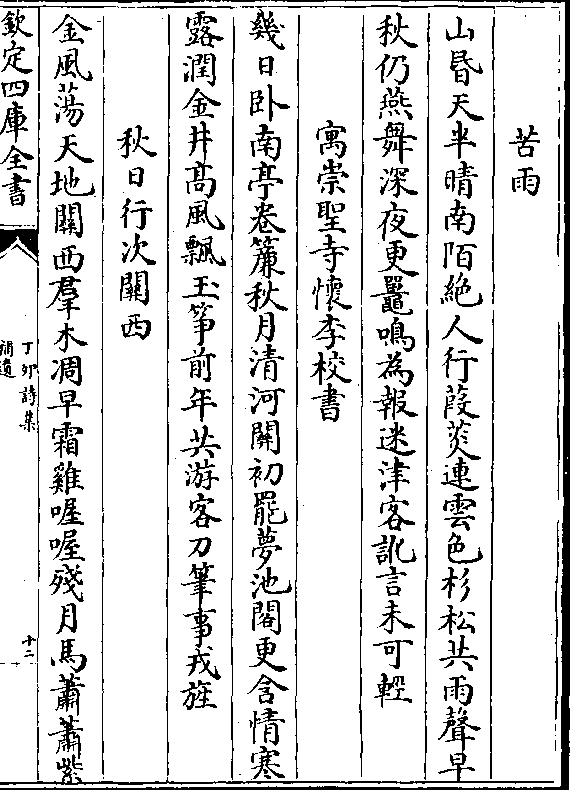 苦雨
山昬天半晴南陌絶人行葭菼連雲色杉松共雨聲早
秋仍燕舞深夜更鼉鳴為報迷津客訛言未可輕
寓崇聖寺懷李校書
幾日卧南亭卷簾秋月清河關初罷夢池閣更含情寒
露潤金井髙風飄玉箏前年共游客刀筆事戎旌
秋日行次關西
金風蕩天地關西羣木凋早霜雞喔喔殘月馬蕭蕭紫
欽定四庫全書
丁卯詩集
補遺
十二